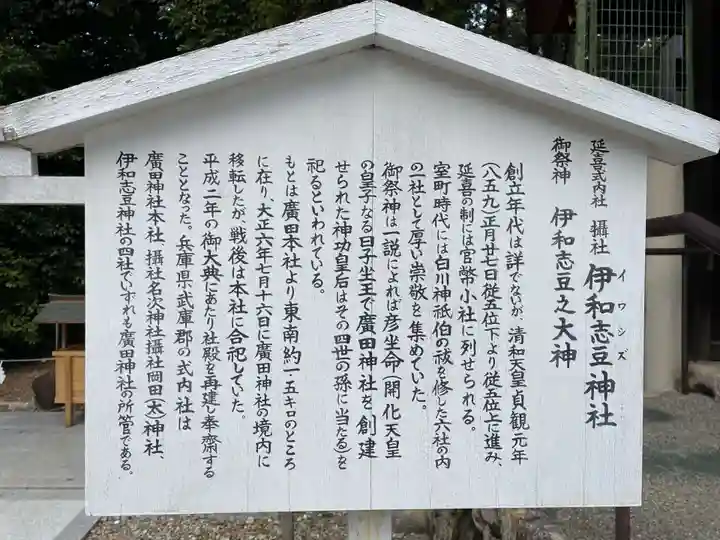 延喜式内社 攝社 伊和志豆神社
イワシズ
御祭神 伊和志豆之大神
創立年代は詳でないが、清和天皇貞観元年
(八五九)正月廿七日従五位下より従五位上に進み、
延喜の制には官幣小社に列せられる。
室町時代には白川神祇伯の祓を修した六社の内
の一社として厚い崇敬を集めていた。
御祭神は一説によれば彦坐命(開化天皇
の皇子なる日子坐王で廣田神社を創建
せられた神功皇后はその四世の孫に当たる)を
祀るといわれている。
もとは廣田本社より東南約一・五キロのところ
に在り、大正六年七月十六日に廣田神社の境内に
移転したが、戦後は本社に合祀していた。
平成二年の御大典にあたり社殿を再建し奉齋する
こととなった。兵庫県武庫郡の式内社は
廣田神社本社、攝社名次神社、攝社岡田(太)神社、
伊和志豆神社の四社でいずれも廣田神社の所管である。